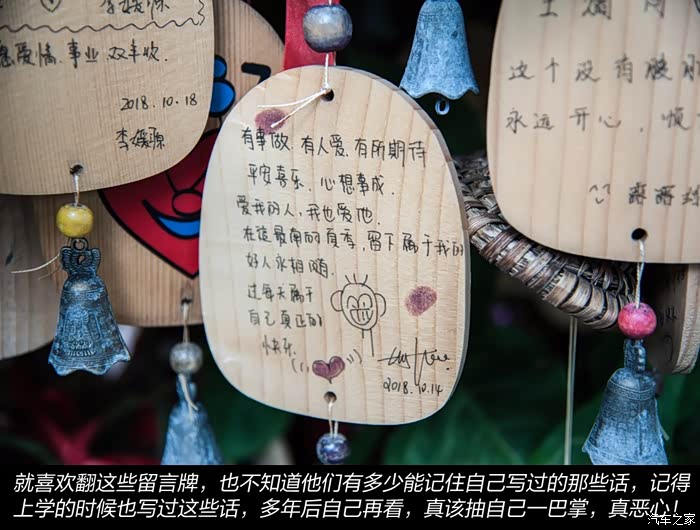 愿爱情.事业 双丰收.
2018.10.18
李媛源
有事做.有人爱.有所期待
平安喜乐.心想事成.
爱我的人,我也爱他.
在这最南的夏季,留下属于我的
好人永相随.
过每天属于
自己真正的
快乐.
2018.10.14
这个没有
永远开心.
就喜欢翻这些留言牌，也不知道他们有多少能记住自己写过的那些话，记得
上学的时候也写过这些话，多年后自己再看，真该抽自己一巴掌，真恶心！
汽车之家